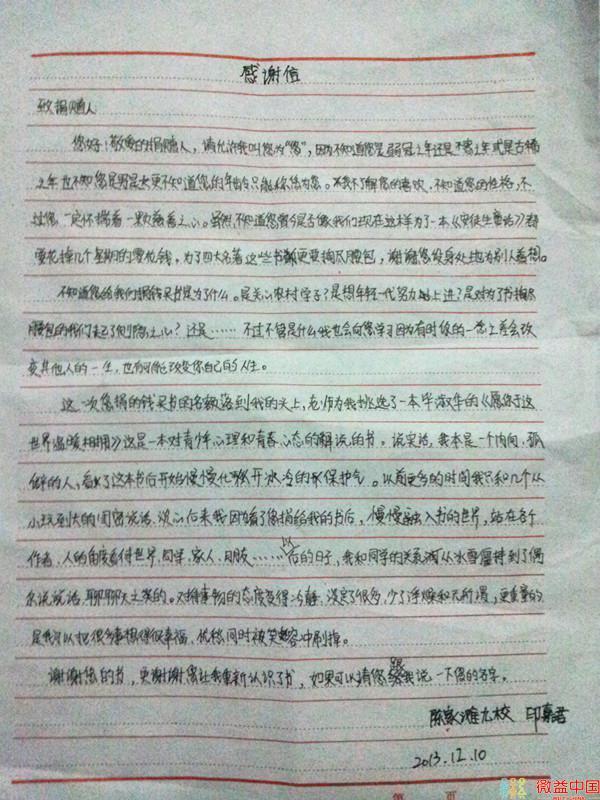 感谢信
致捐赠人
您好!敬爱的捐赠人,请允许我叫您为“您”,因为不知道您是弱冠之年还是不惑之年或是古稀
之年也不知您是男是女更不知道您的年龄只能称您为您。不了解您的喜欢,不知道您的性格,不
过您一定怀揣着一颗慈善之心。虽然不知道您曾今是否像我们现在这样为了一本《安徒生童话》都
要花掉几个星期的零花钱,为了四大名著这些书都更要掏尽腰包,谢谢您设身处地为别人着想。
不知道您给我们捐钱买书是为了什么。是关心农村学子?是想年轻一代努力向上进?是对为了书掏尽
腰包的我们起了恻隐之心?还是……不过不管是什么我也会向您学习因为有时候的一次上善会改
变其他人的一生,也有可能改变你自己的人生。
这一次您捐的钱买书的名额落到我的头上,老师为我挑选了一本毕淑敏的《愿你与这
世界温暖相拥》这是一本对青少年心理和青春心态的解说的书。说实话,我本是一个内向、孤
僻的人,看了这本书后开始慢慢化开冰冷的保护气。以前更多的时间我只和几个从
小玩到大的闺密说话、谈心后来我因为看了您捐给我的书后,慢慢融入书的世界,站在各个
作者、人的角度看待世界、同学、家人、朋友……以后的日子,我和同学的关系从冰雪僵持到了偶
尔说说话、聊聊天之类的。对待事物的态度变得冷静、淡定了很多,少了浮躁和无所谓,更重要的
是我可以把很多事想得很幸福,忧愁同时被笑容冲刷掉。
谢谢您的书,更谢谢您让我重新认识了书,如果可以请您跟我说一下您的名字。
陈家滩九校 印嘉君
2013.12.10
第 页
微益中国